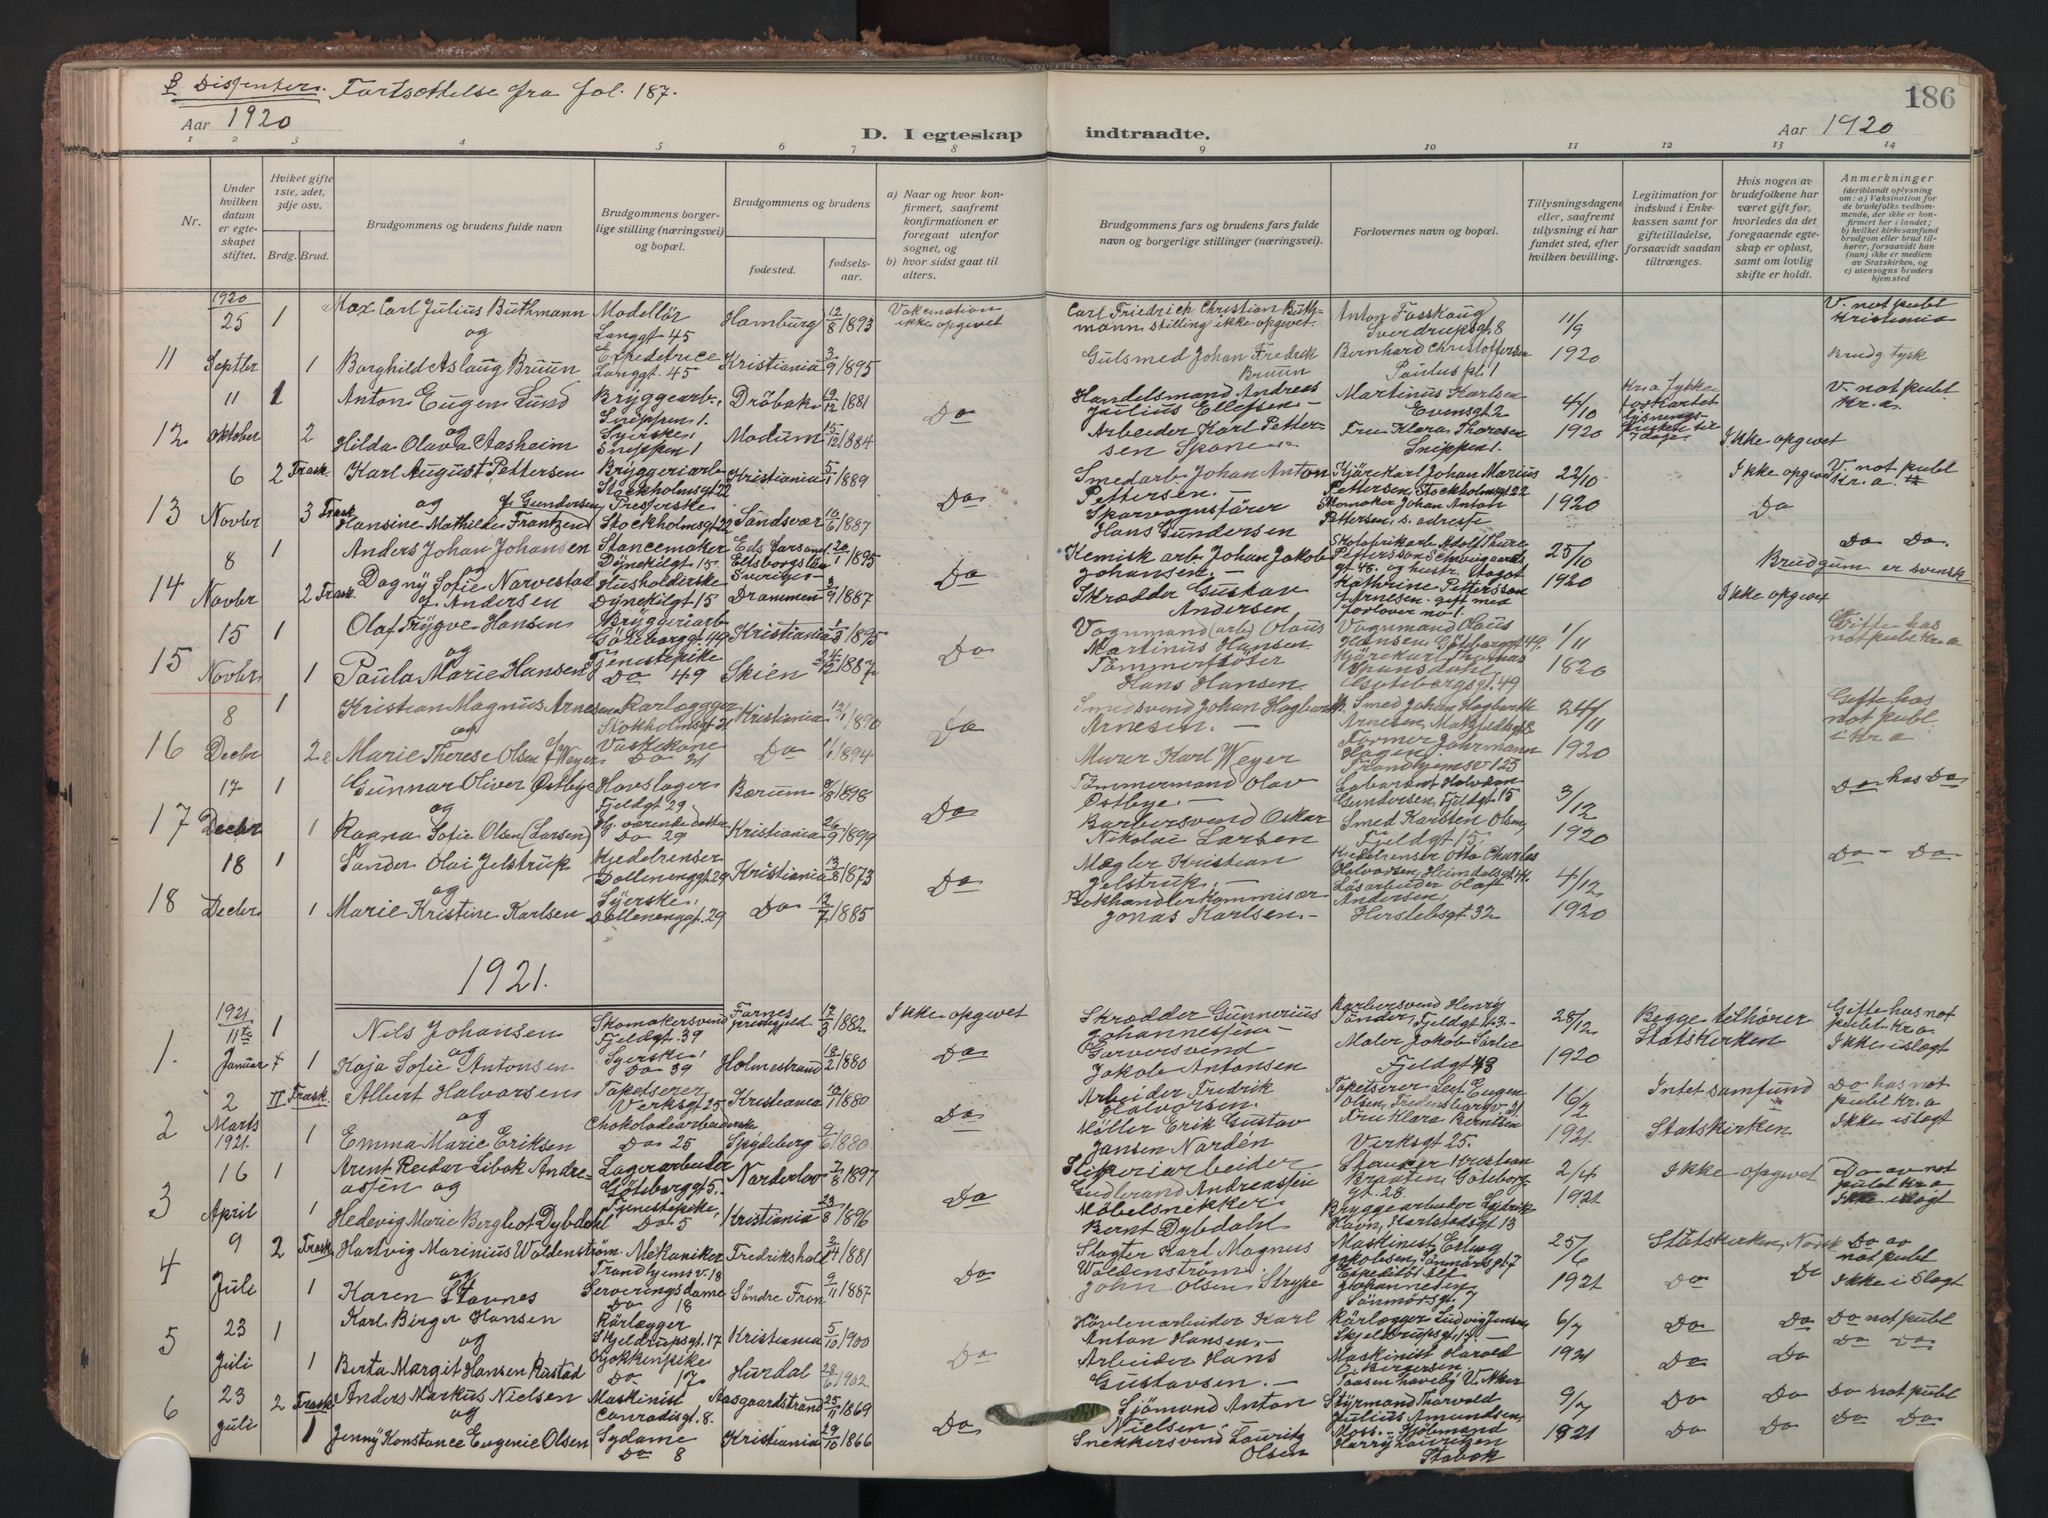 B Dissenter. Fortsættelse fra fol. 187.
186
Aar 1920
D. I egteskap indtraadte.
Aar 1920
1 2 3 4 5 6 7 8 9 10 11 12 13 14
Nr.
Under hvilken datum er egteskapet stiftet.
Hvilket gifte 1ste, 2det, 3dje osv.
Brdg. Brud.
Brudgommens og brudens fulde navn
Brudgommens borgerlige stilling (næringsvei) og bopæl.
Brudgommens og brudens
fødested.
fødselsaar.
a) Naar og hvor konfirmert, saafremt konfirmationen er foregaat utenfor sognet, og
b) hvor sidst gaat til alters.
Brudgommens fars og brudens fars fulde navn og borgerlige stillinger (næringsvei).
Forlovernes navn og bopæl.
Tillysningsdagene eller, saafremt tillysning ei har fundet sted, efter hvilken bevilling.
Legitimation for indskud i Enkekassen samt for giftetilladelse, forsaavidt saadan tiltrænges.
Hvis nogen av brudefolkene har været gift før, hvorledes da det foregaaende egteskap er opløst, samt om lovlig skifte er holdt.
Anmerkninger
(deriblandt oplysning om: a) Vaksination for de brudefolks vedkommende, der ikke er konfirmert her i landet; b) hvilket kirkesamfund brudgom eller brud tilhører, forsaavidt han (hun) ikke er medlem av Statskirken, og c) utensogns bruders hjemsted
11 1920 25 Septbr 1 Max Carl Julius Buthmann Modellör Langgt 45 Hamburg 12/8 1893 Vaksination ikke opgivet
Carl Friedrich Christian Buthmann stilling ikke opgivet. Anton Fosskaug Sverdrupsgt. 8 11/9 1920 V. not publ Kristiania
og
1 Borghild Aslaug Bruun Expeditrice Langgt. 45 Kristiania 3/9 1895
Gulsmed Johan Fredrik Bruun Bernhard Christoffersen Paulus pl. 1 Brudg tysk
12 11 Oktober 1 Anton Eugen Lund Bryggearb. Snippen 1 Dröbak 12/12 1881 Do
Handelsmand Andreas Julius Ellefsen Martinus Karlsen Evensgt 2 4/10 1920 V. not publ Kr.a
og
2 Hilda Olava Aasheim Syerske Snippen 1 Modum 15/12 1884
Arbeider Karl Pettersen Spone Fru Klara Thoresen Snippen 1. Ikke opgivet
13 6 Novbr 2 Frask. Karl August Pettersen Bryggeriarb Stockholmsgt 22 Kristiania 5/1 1889 Do
Smedarb. Johan Anton Pettersen Kjörekarl Johan Marius Pettersen, Stockholmsgt 22 22/10 1920 Ikke opgivet V. not publ Kr.a
og
3 Frask Hansine Mathilde Frantzen f. Gundersen Presserske Stockholmsgt 22 Sandsvær 10/6 1887
Sporvognsförer Hans Gundersen Skomaker Johan Anton Pettersen, s. adresse Do
14 8 Novbr 1 Anders Johan Johansen Stancemaker Dynekilgt 15 Eds Elfsborgslän Sverige 20/1 1895 Do
Kemisk arb. Johan Jakob Johansen 25/10 1920 Do Do. Brudgum er svensk
og
2 Frask Dagny Sofie Narvestad f. Andersen Husholderske Dynekilgt 15 Drammen 3/9 1887
Skrædder Gustav Andersen Ikke opgivet
15 15 Novbr. 1 Olaf Trygve Hansen Bryggeriarb Göteborggt 49 Kristiania 1/3 1895 Do
Vognmand (arb) Olaus Martinus Hansen Vognmand Olaus Hansen Göteborggt 49. 1/11 1820 Gifte has not publ. Kr.a
og
1 Paula Marie Hansen Tjenestepike Do 49 Skien 24/12 1887
Tömmerflöter Hans Hansen Göteborgsgt. 49
16 8 Decbr 1 Kristian Magnus Arnesen Rørlægger Stokholmsgt 21 Kristiania 1890 Do
Smedsvend Johan Hagbarth Arnesen Smed Johan Hagbarth Arnesen 24/11 1920 Gifte has not publ. i kr.a
og
2 Marie Therese Olsen f Weyer Vaskekone Do 21 Do 1894
Murer Karl Weyer Trondhjemsv 125
17 17 Decbr 1 Gunnar Oliver Østbye Hovslager Fjeldgt 29 Bærum 1898 Do
Tömmermand Olav Østbye Laborant Halvdan Gundersen, Fjeldgt 15 3/12 1920 Do has Do
og
1 Ragna Sofie Olsen (Larsen) Hj. værende dotter Do 29 Kristiania 26/9 1899
Barbersvend Oskar Nikolai Larsen Smed Karsten Olsen, Fjeldgt 15.
18 18 Decbr 1 Sander Olai Jelstrup Kjedelrenser Dollenenggt 29 Kristiania 13/8 1873 Do
Mægler Kristian Jelstrup Kjedelrenser Otto Charles Halvorsen, Heimdalsgt 4/12 1920 Do - Do
og
1 Marie Kristine Karlsen Syerske Dollenenggt. 29 Do 12/7 1885
Bokhandlerkommisær Jonas Karlsen Løsarbeider Olaf Andersen, Herslebsgt 32
1921.
1. 1921 11te Januar 1 Nils Johansen Skomakersvend Fjeldgt 39 Farnes prestegjeld 17/3 1882 Ikke opgivet
Skrædder Gunnerius Johannessen Barbersvend Henry Tönder, Fjeldgt 43 28/12 1920 Begge tilhører Statskirken Gifte has not publ. Kr.a Ikke i slegt
og
1 Kaja Sofie Antonsen Syerske Do 39 Holmestrand 18/2 1880 Do
Garversvend Jakob Antonsen Maler Jakob Sörlie Fjeldgt 43
2 2 Marts 1921. II Frask. Albert Halvorsen Tapetserer Verksgt 25 Kristiania 10/1 1880 Do
Arbeider Fredrik Halvorsen Tapetserer Eugen Olsen 16/2 1921. Intet samfund Do has not publ Kr.a
og
1 Emma Marie Eriksen Chokoladearbeiderske Do 25 Spydeberg 9/6 1880
Möller Erik Gustav Jansen Nordén Fru Klara Berntsen Verksgt 25. Statskirken Ikke i slegt
3 16 April 1 Arent Reidar Libok Andreassen Lagerarbeider Göteborggt 5. Norderhov 2/8 1897 Do
Sliperiarbeider Gudbrand Andreassen Braaten, Göteborggt. 28. 2/4 1921 Ikke opgivet Do av not publ Kr.a Ikke i slegt
og
1 Hedevig Marie Bergliot Dybdahl Tjenestepike, Do 5 Kristiania 23/8 1896
Möbelsnekker Bernt Dybdahl Bryggearbeider Fredrik Havn, Karlstadsgt 13
4 9 Jule 2 Frask Hartvig Marinius Waldenström Mekaniker Trondhjemsv. 18 Fredrikshald 2/4 1881 Do
Slagter Karl Magnus Waldenström Maskinist Erling Jakobsen, Sönmörsgt 7 25/6 1921 Statskirken, Norsk Do av not publ
og
1 Karen Stavnes Serveringsdame Do 18 Söndre Fron 9/11 1887
John Olsen Strype Expeditör Alf Johannesen Sönmörsgt. 7 Do Do Ikke i slegt
5 23 Juli 1 Karl Birger Hansen Rörlægger Skjeldrupsgt. 17 Kristiania 5/10 1900 Do
Høvlerarbeider Karl Anton Hansen Rörlægger Ludvig Jensen 6/7 1921 Do Do Do not publ
og
1 Berta Margit Hansen Rustad Kjökkenpike Do 17 Hurdal 28/6 1902
Arbeider Hans Gustavsen Maskinist Harald Bergersen Do Do Do Do
6 23 Juli 2 Frask Anders Markus Nielsen Maskinist Conradisgt. 8. Aasgaardstrand 25/11 1869 Do
Sjömand Anton Nielsen Styrmand Thorvald Julius Amundsen, Moss 9/7 1921 Do Do Do not publ
og
1 Jenny Konstance Eugenie Olsen Sydame Do 8 Kristiania 29/10 1866
Snekkersvend Lauritz Olsen Kjöbmand Harry Lauritzen Stabæk Do Do Do Do